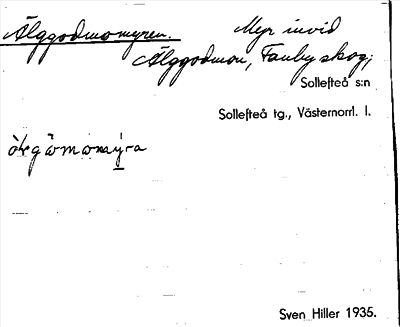 Älggodmomyren. Myr invid
Älggodmon, Fanby skog,
Sollefteå s:n
Sollefteå tg., Västernorrl. l.
Sven Hiller 1935.